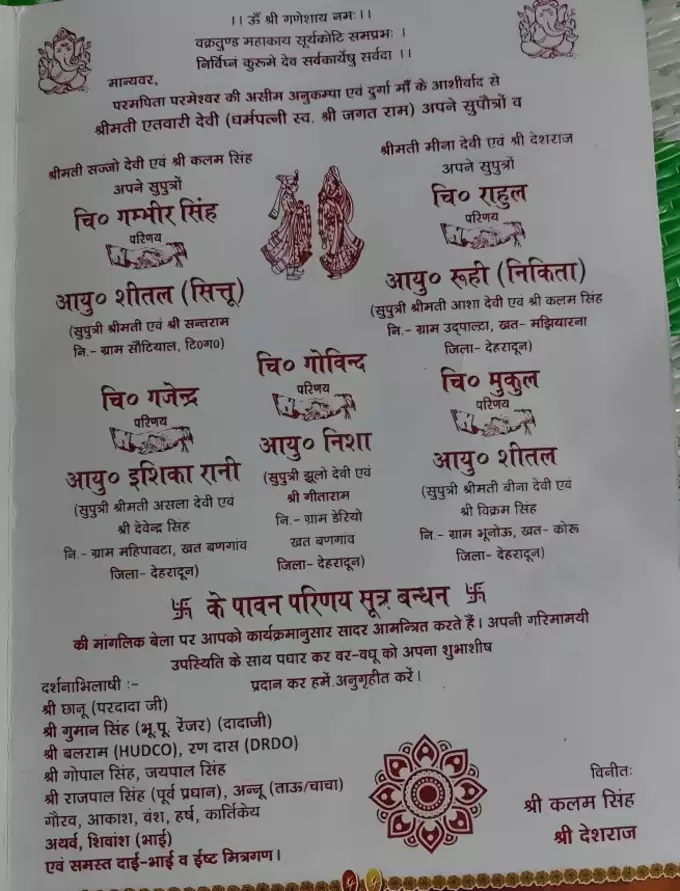 ।। ॐ श्री गणेशाय नमः ।।
वक्रतुण्ड महाकाय सूर्यकोटि समप्रभः ।
निर्विघ्नं कुरूमे देव सर्वकार्येषु सर्वदा ।।
मान्यवर,
परमपिता परमेश्वर की असीम अनुकम्पा एवं दुर्गा माँ के आशीर्वाद से
श्रीमती एतवारी देवी (धर्मपत्नी स्व. श्री जगत राम) अपने सुपौत्रों व
श्रीमती सज्जो देवी एवं श्री कलम सिंह
अपने सुपुत्रों
चि० गम्भीर सिंह
परिणय
आयु० शीतल (सित्तू)
(सुपुत्री श्रीमती एवं श्री सन्तराम
नि.- ग्राम सौटियाल, टि०ग०)
श्रीमती मीना देवी एवं श्री देशराज
अपने सुपुत्रों
चि० राहुल
परिणय
आयु० रूही (निकिता)
(सुपुत्री श्रीमती आशा देवी एवं श्री कलम सिंह
नि.- ग्राम उद्पाल्टा, खत- मझियारना
जिला- देहरादून)
चि० गजेन्द्र
परिणय
आयु० इशिका रानी
(सुपुत्री श्रीमती असला देवी एवं
श्री देवेन्द्र सिंह
नि.- ग्राम महिपावटा, खत बणगांव
जिला- देहरादून)
चि० गोविन्द
परिणय
आयु० निशा
(सुपुत्री झूलो देवी एवं
श्री गीताराम
नि.- ग्राम डेरियो
खत बणगांव
जिला- देहरादून)
चि० मुकुल
परिणय
आयु० शीतल
(सुपुत्री श्रीमती बीना देवी एवं
श्री विक्रम सिंह
नि.- ग्राम भूनोऊ, खत- कोरू
जिला- देहरादून)
卐 के पावन परिणय सूत्र बन्धन 卐
की मांगलिक बेला पर आपको कार्यक्रमानुसार सादर आमन्त्रित करते हैं। अपनी गरिमामयी
उपस्थिति के साथ पधार कर वर-वधू को अपना शुभाशीष
प्रदान कर हमें अनुगृहीत करें।
दर्शनाभिलाषी :-
श्री छानू (परदादा जी)
श्री गुमान सिंह (भू.पू. रेंजर) (दादाजी)
श्री बलराम (HUDCO), रण दास (DRDO)
श्री गोपाल सिंह, जयपाल सिंह
श्री राजपाल सिंह (पूर्व प्रधान), अन्नू (ताऊ/चाचा)
गौरव, आकाश, वंश, हर्ष, कार्तिकेय
अथर्व, शिवांश (भाई)
एवं समस्त दाई-भाई व ईष्ट मित्रगण।
विनीतः
श्री कलम सिंह
श्री देशराज